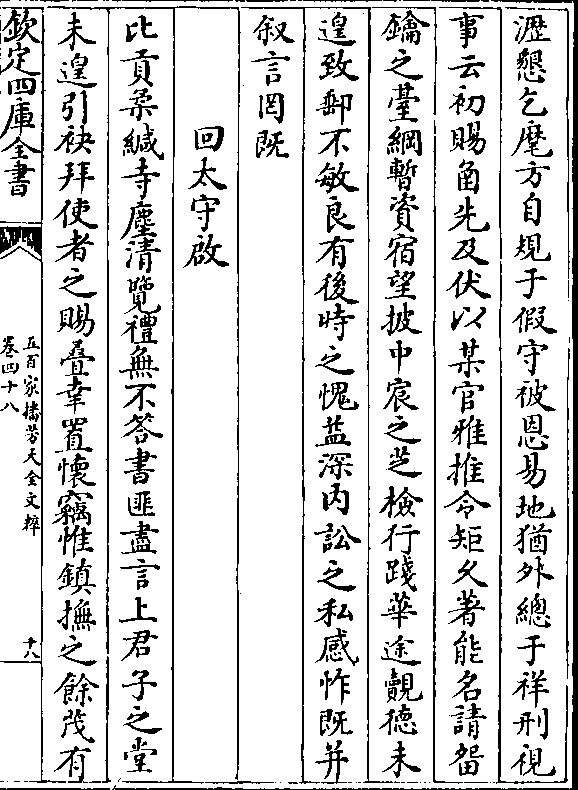 瀝懇乞麾方自規于假守被恩易地猶外總于祥刑視
事云初賜函先及伏以某官雅推令矩久著能名請留
鑰之臺綱暫資宿望披中宸之芝檢行踐華途覿德未
遑致郵不敏良有後時之愧益深內訟之私感怍既并
叙言罔既
回太守啟
比貢柔緘寺塵清覽禮無不答書匪盡言上君子之堂
未遑引袂拜使者之賜疊幸置懷竊惟鎮撫之餘茂有
欽定四庫全書
五百家播芳大全文粹
卷四十八
十八